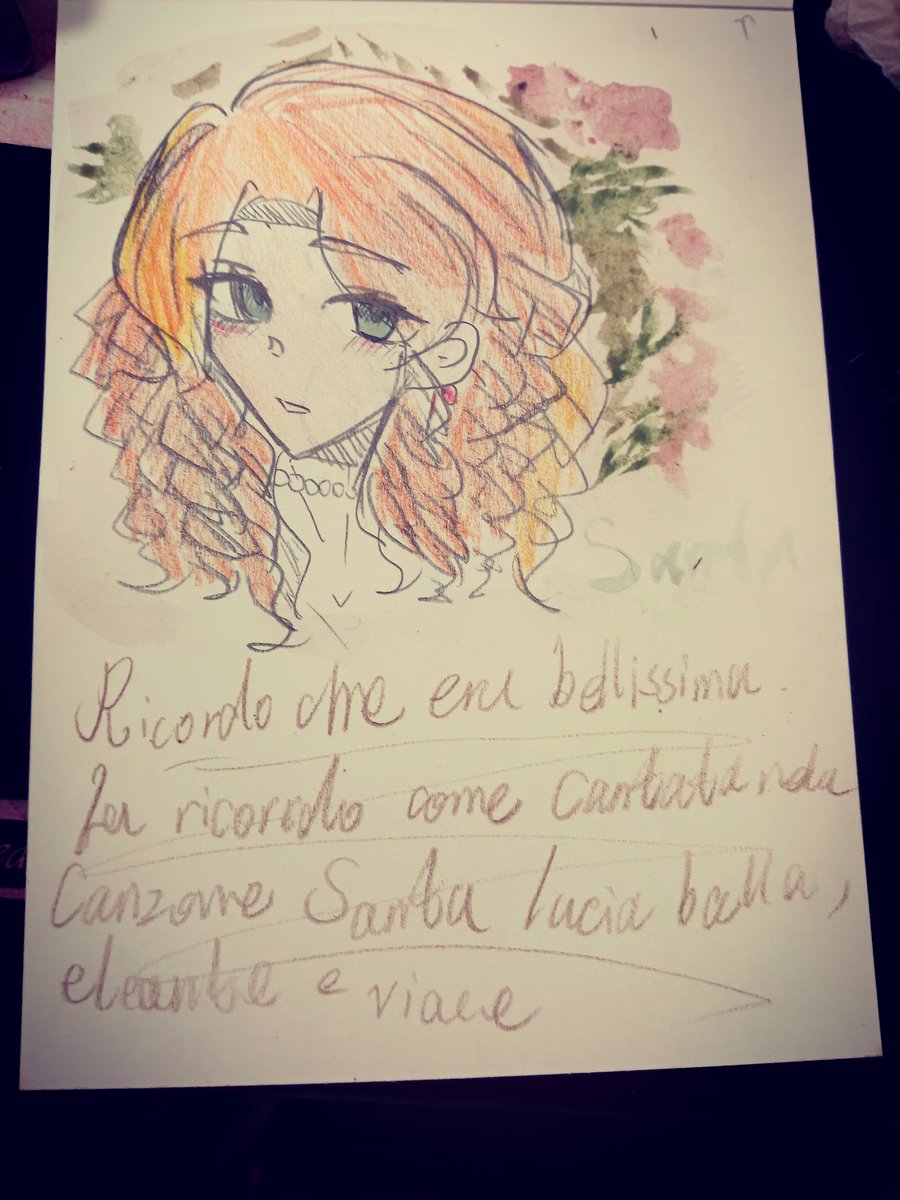 Ricordo che era bellissima.
La ricordo come cantata nda
Canzone Santa lucia balla,
eleante e viace